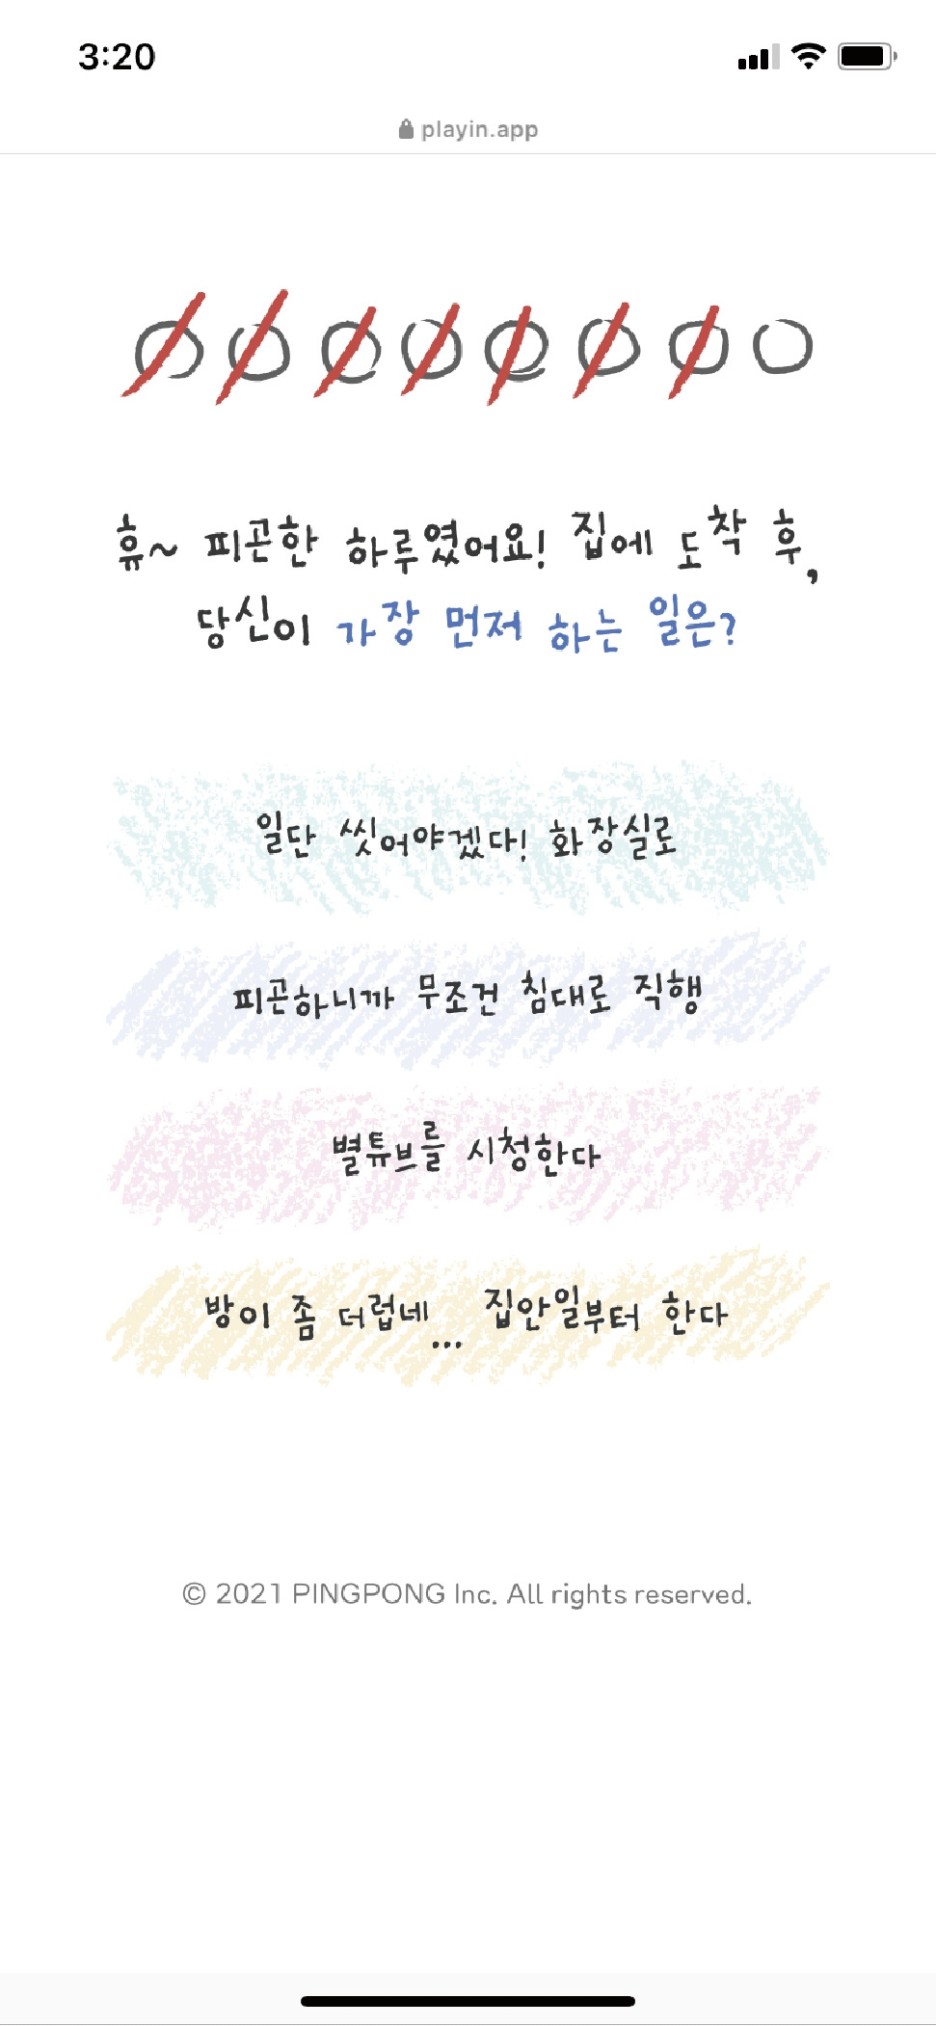 3:20
playin.app
휴~ 피곤한 하루였어요! 집에 도착 후,
당신이 가장 먼저 하는 일은?
일단 씻어야겠다! 화장실로
피곤하니까 무조건 침대로 직행
별튜브를 시청한다
방이 좀 더럽네... 집안일부터 한다
© 2021 PINGPONG Inc. All rights reserved.